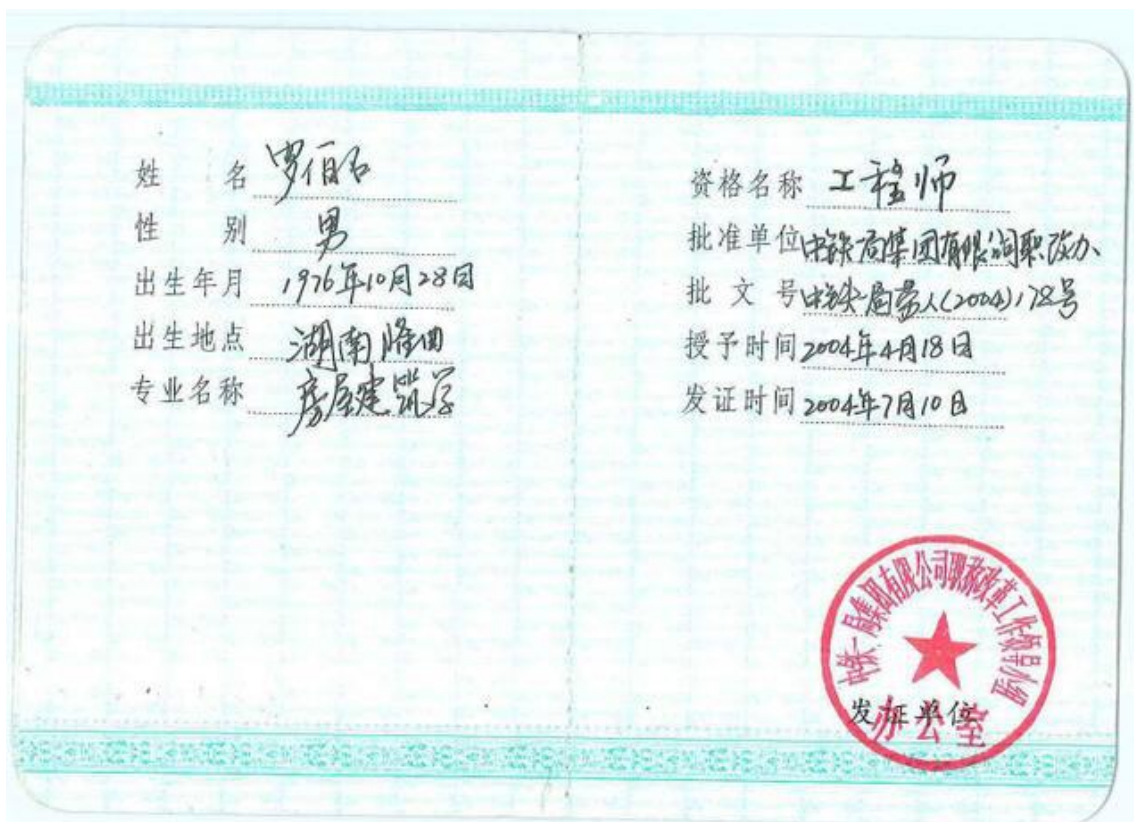 姓 名 罗伯石
性 别 男
出生年月 1976年10月28日
出生地点 湖南隆回
专业名称 房屋建筑学
资格名称 工程师
批准单位 中铁一局集团有限公司职改办、
批 文 号 中铁一局劳人(2004)178号
授予时间 2004年4月18日
发证时间 2004年7月10日
中铁一局集团有限公司职称改革工作领导小组
办公室
发证单位